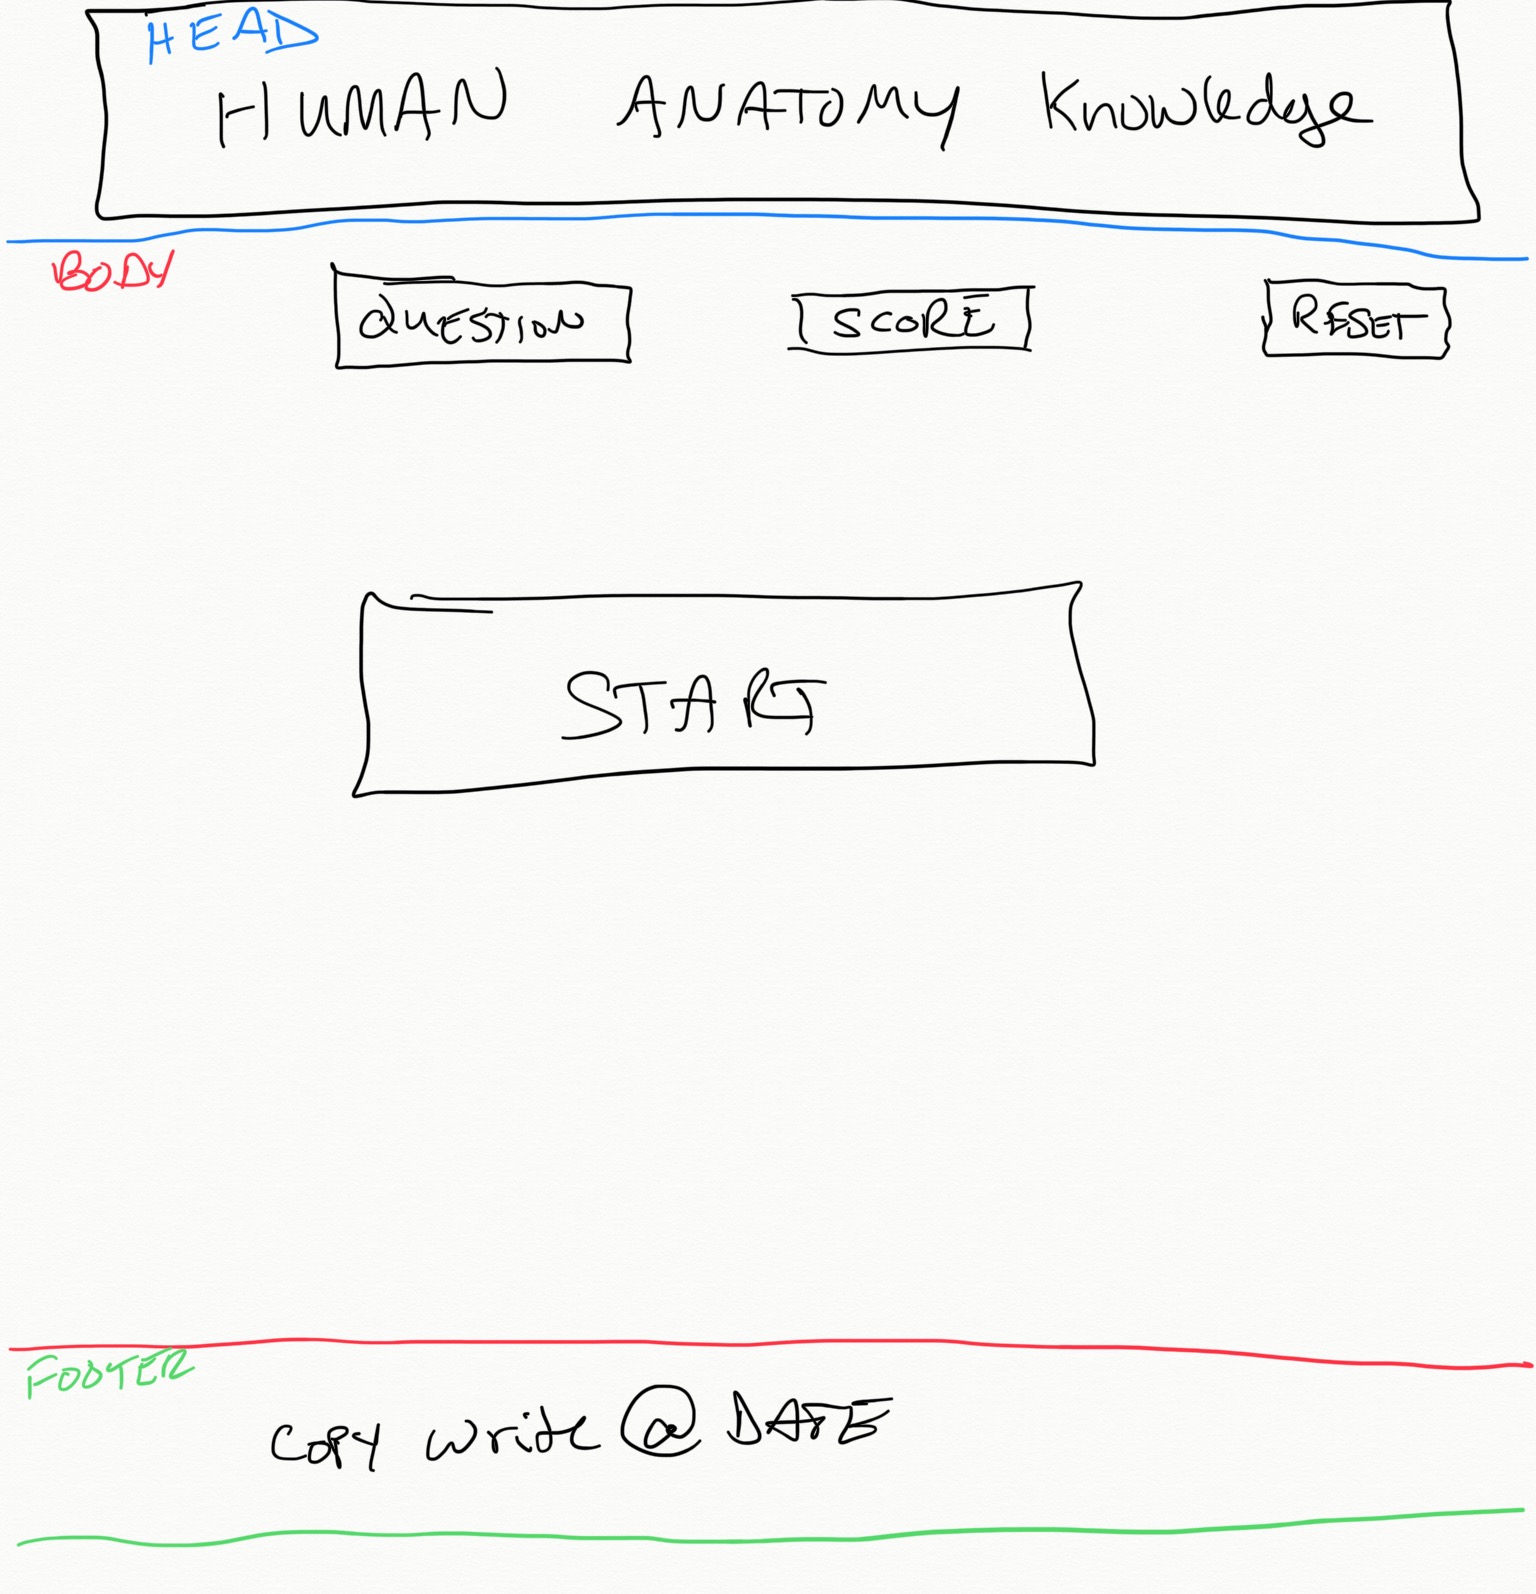 HEAD
HUMAN ANATOMY Knowledge
BODY
QUESTION SCORE RESET
START
FOOTER
COPY write @ DATE